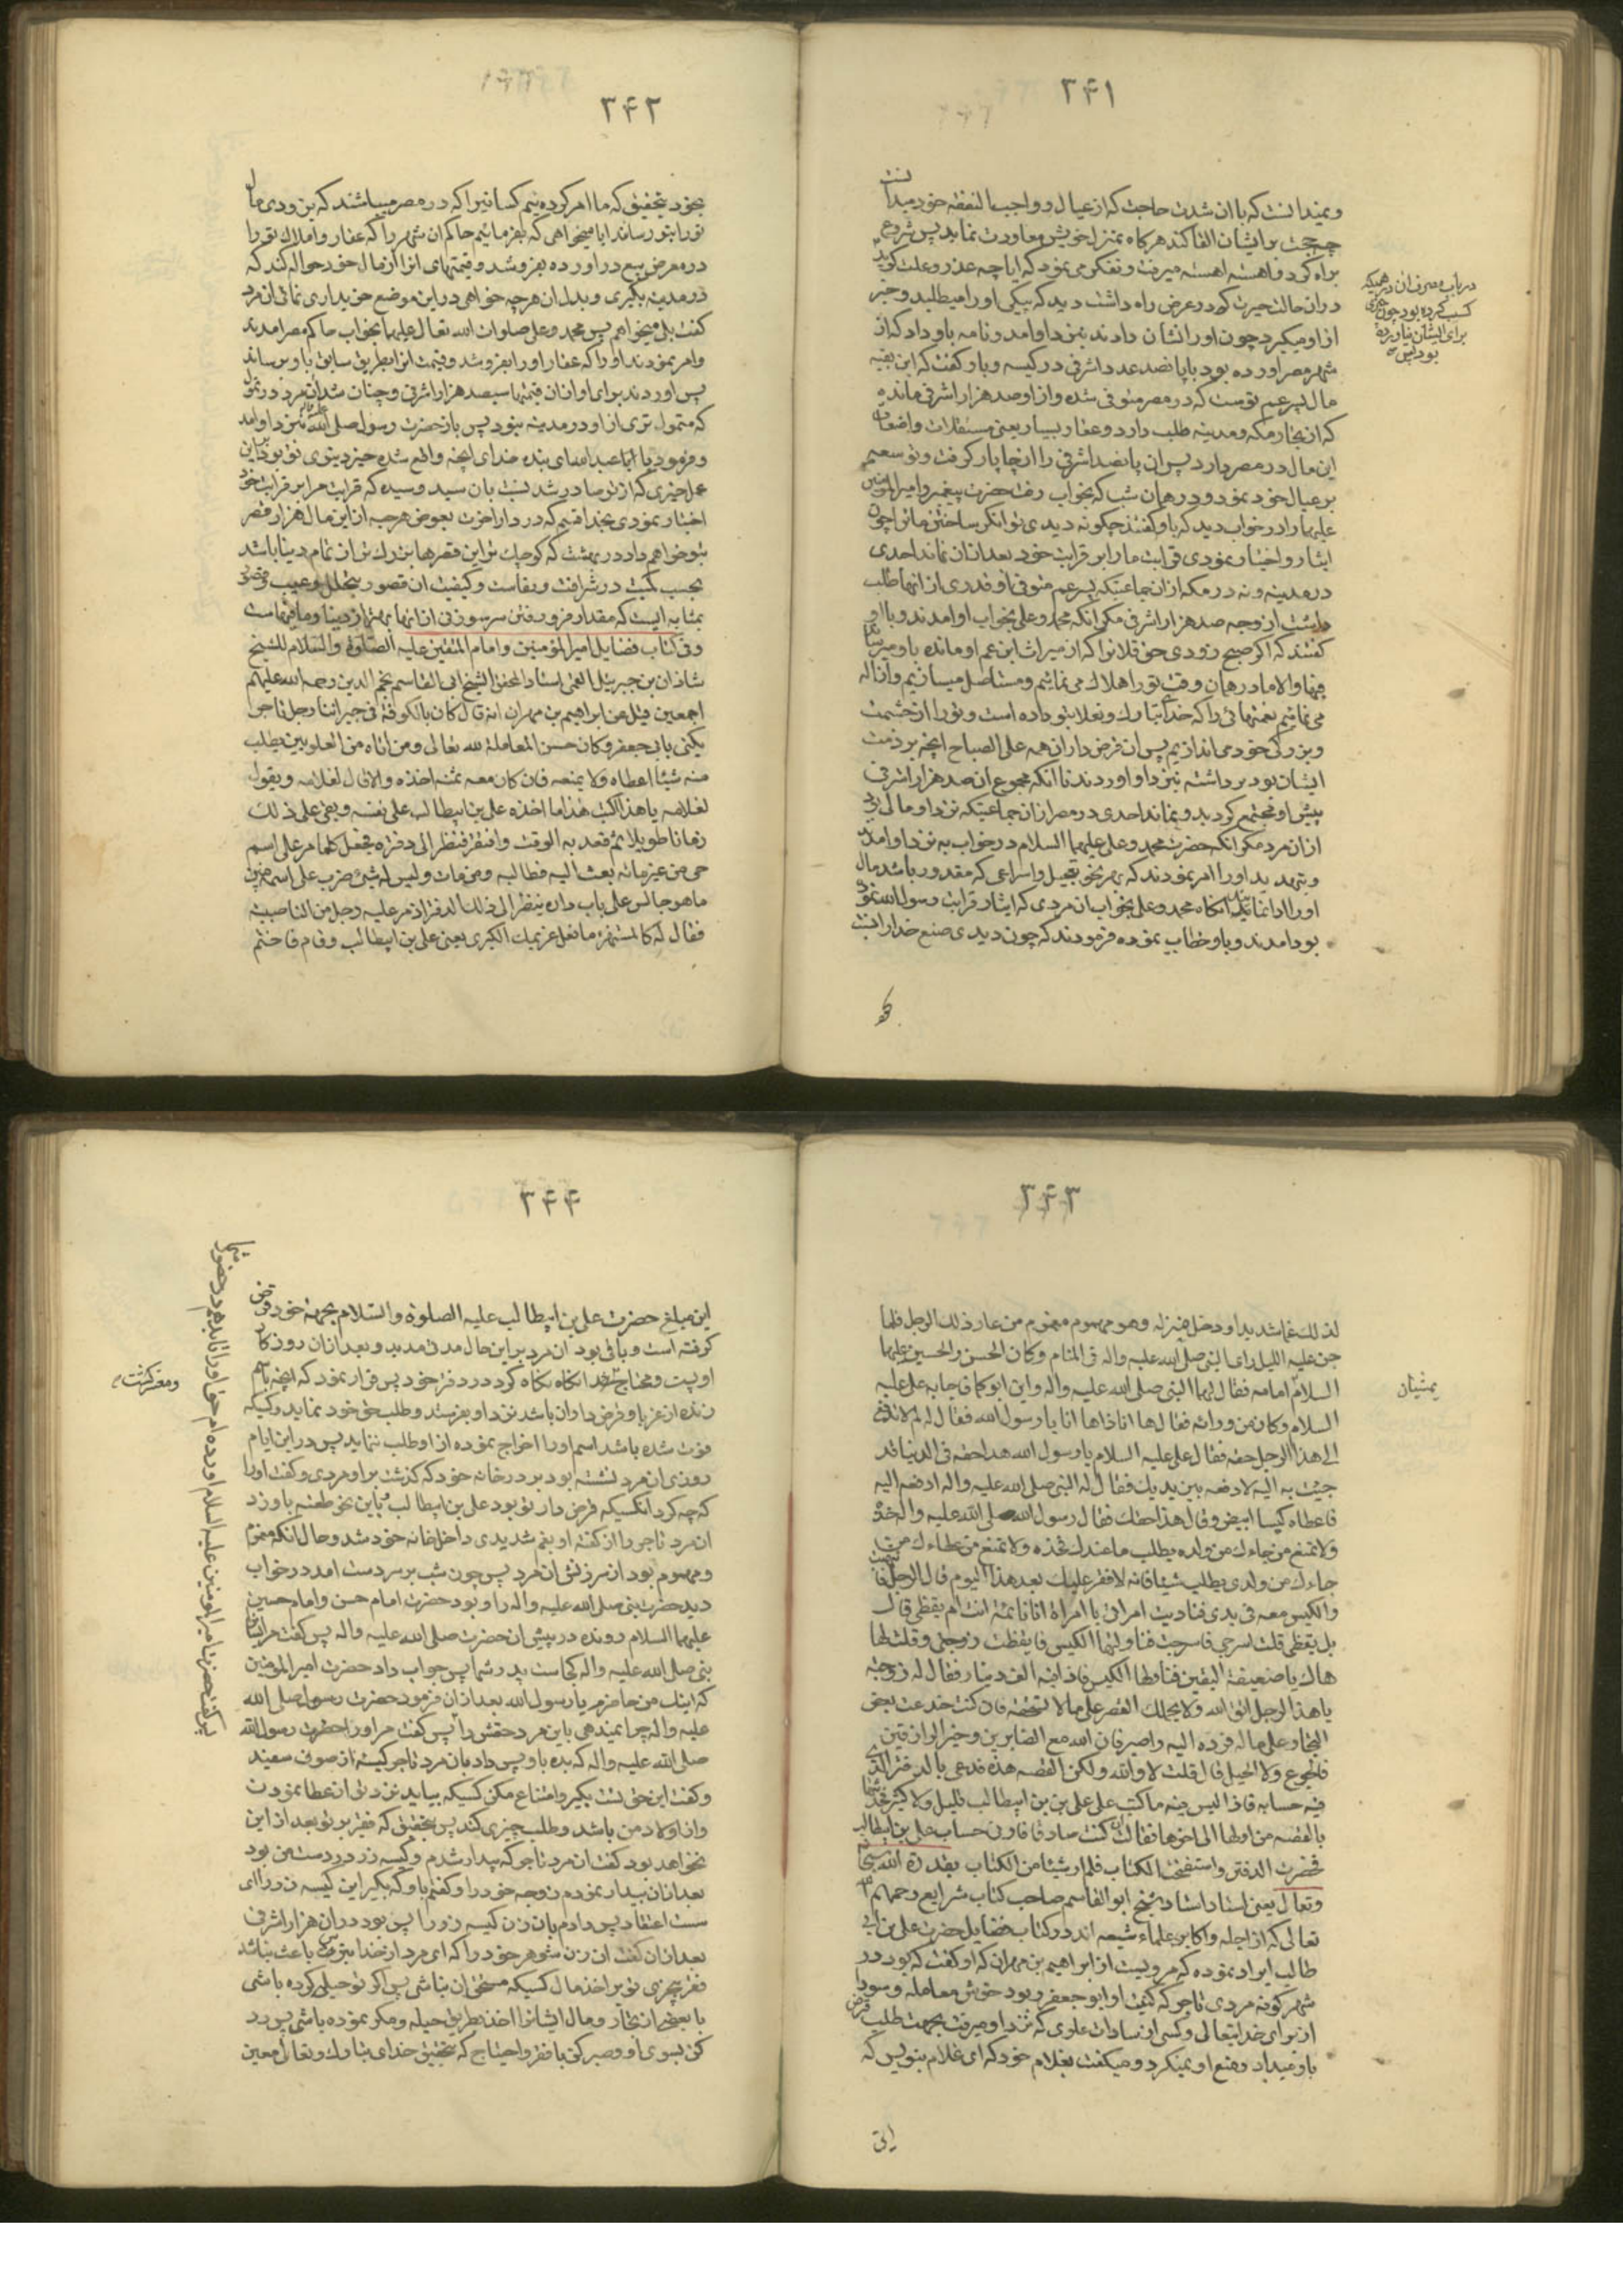 ۳۴۱
و نمیدانست که با ان شدت حاجت که از عیال و واجب النفقه خود میدانست
چه حجت بر ایشان القا کند هرگاه بمنزل خویش معاودت نماید پس شروع
براه کرد و اهسته اهسته میرفت و تفکر می نمود که ایا چه عذر و علت گوید
در ان حالت حیرت که در عرض راه داشت دید که پیکی او را میطلبد و خبر
از او میگیرد چون او را نشان دادند بنزد او امد و نامه باو داد که از
شهر مصر اورده بود با پانصد عدد اشرفی در کیسه و باو گفت که این بقیه
مال پسر عم توست که در مصر متوفی شده و از او صد هزار اشرفی مانده
که از تجار مکه و مدینه طلب دارد و عقار بسیار یعنی مستقلات و اضعاف
این مال در مصر دارد پس ان پانصد اشرفی را انجا پار گرفت و توسعه
بر عیال خود نمود و در همان شب که بخواب رفت حضرت پیغمبر و امیرالمؤمنین
علیهما را در خواب دید که باو گفتند چگونه دیدی توانگر ساختن ما ترا چون
ایثار و اختیار نمودی قرابت ما را بر قرابت خود بعد از ان نماند احدی
در مدینه و نه در مکه از ان جماعتیکه پسر عم متوفی او قدری از انها طلب
داشت از وجه صد هزار اشرفی مگر انکه محمد و علی بخواب او امدند و با او
گفتند که اگر صبح زودی حق فلان را که از میراث ابن عم او مانده باو میرسانی
فبها والا ما در همان وقت تو را هلاک می نمائیم و مستاصل میسازیم و ازاله
می نمائیم نعمتهائی را که خدا تبارک و تعالا بتو داده است و تو را از حشمت
و بزرگی خود می اندازیم پس ان قرض داران همه علی الصباح انچه بر ذمت
ایشان بود برداشته بنزد او اوردند تا انکه مجموع ان صد هزار اشرفی
پیش او مجتمع گردید و نماند احدی در مصر از ان جماعتیکه نزد او مالی بود
از ان مرد مگر انکه حضرت محمد و علی علیهما السلام در خواب به نزد او امدند
و بتهدید او را امر نمودند که بهر نحو تعجیل و اسراعی که مقدور باشد مال
او را ادا نماید انگاه محمد و علی بخواب ان مردی که ایثار قرابت رسول الله نموده
بود امدند و باو خطاب نموده فرمودند که چون دیدی صنع خدا را نسبت
در باب صرف ان درهمیکه
کسب کرده بود چون چیزی
برای ایشان نیاورده
بود پس
۳۴۲
بخود بتحقیق که ما امر کرده ئیم کسانیرا که در مصر میباشند که بزودی مال
تو را بتو رساند ایا میخواهی که بفرمائیم حاکم ان شهر را که عقار و املاک تو را
در معرض بیع در اورده بفروشد و قیمتهای انرا از مال خود حواله کند که
در مدینه بگیری و بدل ان هرچه خواهی در این موضع خریداری نمائی ان مرد
گفت بلی میخواهم پس محمد و علی صلوات الله تعالی علیهما بخواب حاکم مصر امدند
و امر نمودند او را که عقار او را بفروشد و قیمت انرا بطریق سابق باو برساند
پس اوردند برای او از ان قیمتها سیصد هزار اشرفی و چنان شد ان مرد در تمول
که متمول تری از او در مدینه نبود پس باز حضرت رسول صلی الله علیه و اله بنزد او امد
و فرمود یا ابا عبدالله ای بنده خدای انچه واقع شده جزء دنیوی تو بود بر این
عمل خیری که از تو صادر شد نسبت بان سید و سیده که قرابت مرا بر قرابت خود
اختیار نمودی بخدا قسم که در دار اخرت بعوض هر حبه از این مال هزار قصر
بتو خواهم داد در بهشت که کوچک تر این قصرها بزرک تر ان تمام دنیا باشد
بحسب کمیت در شرافت و نفاست و کیفیت ان قصور بیخلل و عیب و قصور
بمثابه ایست که مقدار فرو رفتن سر سوزنی از انها بهتر از دنیا و ما فیهاست
و فی کتاب فضایل امیر المؤمنین و امام المتقین علیه الصلوة والسلام للشیخ
شاذان بن جبرئیل القمی استاد المحقق الشیخ ابی القاسم نجم الدین رحمه الله علیهم
اجمعین قیل عن ابراهیم بن مهران انه قال کان بالکوفة فی جیراننا رجل تاجرا
یکنی بابی جعفر و کان حسن المعاملة لله تعالی و من اتاه من العلویین یطلب
منه شیئا اعطاه و لا یمنعه فان کان معه ثمنه اخذه و الا قال لغلامه و یقول
لغلامه یا هذا اکتب هذا ما اخذه علی بن ابیطالب علی نفسه و بقی علی ذلک
زمانا طویلا ثم قعد به الوقت و افتقر فنظر الی دفتره فجعل کلما مر علی اسم
حی من غرمائه بعث الیه فطالبه و من مات و لیس له شیء ضرب علی اسمه فبین
ما هو جالس علی باب داره ینظر الی ذلک الدفتر اذ مر علیه رجل من الناصبیة
فقال له کالمستهزء ما فعل غریمک الکبری یعنی علی بن ابیطالب و قام فاغتم
۳۴۳
لذلک غما شدیدا و دخل منزله و هو مهموم مغموم من عار ذلک الرجل فلما
جن علیه اللیل رای النبی صلی الله علیه و اله فی المنام و کان الحسن والحسین علیهما
السلام امامه فقال لهما النبی صلی الله علیه و اله و این ابوکما فاجابه علی علیه
السلام و کان من ورائه فقال ها انا ذا ها انا یا رسول الله فقال له لم لا تدفع
الی هذا الرجل حقه فقال علی علیه السلام یا رسول الله هذا حقه فی الدنیا قد
جئت به الیه لادفعه بین یدیک فقال له النبی صلی الله علیه و اله ادفعه الیه
فاعطاه کیسا ابیض و قال هذا حقک فقال رسول الله صلی الله علیه و اله خذه
و لا تمنع من جاءک من ولده یطلب ما عندک فخذه و لا تمنع من عطاءک من
جاءک من ولدی یطلب شیئا فانه لا فقر علیک بعد هذا الیوم قال الرجل فانتبهت
والکیس معه فی یدی فنادیت امراتی یا امراة انا نائمة انت ام یقظی قال
بل یقظی قلت اسرجی فاسرجت فناولتها الکیس فایقظت زوجتی و قلت لها
هاک یا ضعیفة الیقین فناولها الکیس فاذا فیه الف دینار فقال له زوجته
یا هذا الرجل اتق الله و لا یحملک الفقر علی ما لا تستحقه فان کنت خدعت بعض
التجار علی ماله فرده الیه و اصبر فان الله مع الصابرین و خیر الرازقین
فالجوع و لا الحیل قال قلت لا والله و لکن القصه هذه فدعی بالدفتر الذی
فیه حسابه فاذا لیس فیه ما کتب علی علی بن ابیطالب قلیل و لا کثیر تحدثها
بالقصه من اولها الی اخرها فقالت ان کنت صادقا فارنی حساب علی بن ابیطالب
فحضرت الدفتر و استفتحت الکتاب فلم ار شیئا من الکتاب بقدرة الله سبحانه
و تعالی یعنی استاد استاد شیخ ابوالقاسم صاحب کتاب شرایع رحمهم الله
تعالی که از اجله و اکابر علماء شیعه اند در کتاب فضایل حضرت علی بن ابی
طالب ایراد نموده که مرویست از ابراهیم بن مهران که او گفت که بود در
شهر کوفه مردی تاجر که کنیت او ابو جعفر و بود خوش معامله و سودا
از برای خدایتعالی و کسی از سادات علوی که نزد او میرفت بجهت طلب قرض
باو میداد و منع او نمیکرد و میگفت بغلام خود که ای غلام بنویس که
یمشیان
این
۳۴۴
این مبلغ حضرت علی بن ابیطالب علیه الصلوة والسلام بجهة خود قرض
گرفته است و باقی بود ان مرد بر این حال مدتی مدید و بعد از ان روزگار
او پست و محتاج شد انگاه نگاه کرد در دفتر خود پس قرار نمود که انچه نام
زنده از غربا و قرض داران باشد نزد او بفرستد و طلب حق خود نماید و کسیکه
فوت شده باشد اسم او را اخراج نموده از او طلب ننماید پس در این ایام
روزی ان مرد نشسته بود بر در خانه خود که گذشت بر او مردی و گفت او را
که چه کرد انکسیکه قرض دار تو بود علی بن ابیطالب باین نحو طعنه باو زد
ان مرد تاجر را از گفته او بغم شدیدی داخل خانه خود شد و حال انکه مغموم
و مهموم بود از سرزنش ان مرد پس چون شب بر سر دست امد در خواب
دید حضرت نبی صلی الله علیه و اله را و بود حضرت امام حسن و امام حسین
علیهما السلام رونده در پیش ان حضرت صلی الله علیه و اله پس گفت مر ایشانرا
نبی صلی الله علیه و اله کجاست پدر شما پس جواب داد حضرت امیر المؤمنین
که اینک من حاضرم یا رسول الله بعد از ان فرمود حضرت رسول صلی الله
علیه و اله چرا نمیدهی باین مرد حقش را پس گفت مر او را حضرت رسول الله
صلی الله علیه و اله که بده باو پس داد بان مرد تاجر کیسه از صوف سفید
و گفت این حق تست بگیر و امتناع مکن کسیکه بیاید نزد تو از عطا نمودن
و از اولاد من باشد و طلب چیزی کند پس بتحقیق که فقر بر تو بعد از این
نخواهد بود گفت ان مرد تاجر که بیدار شدم و کیسه زر در دست من بود
بعد از ان بیدار نمودم زوجه خود را و گفتم باو که بگیر این کیسه زر را ای
سست اعتقاد پس دادم بان زن کیسه زر را پس بود در ان هزار اشرفی
بعد از ان گفت ان زن شوهر خود را که ای مرد از خدا بترس باعث نباشد
فقر چیزی تو بر اخذ مال کسیکه مستحق ان نباشی پس اگر تو حیله کرده باشی
با بعضی از تجار و مال ایشانرا اخذ بطریق حیله و مکر نموده باشی پس رد
کن بسوی او و صبر کن با فقر و احتیاج که بتحقیق خدای تبارک و تعالی معین
و مفتر گشت
پس گفت حضرت امیر المومنین علیه السلام اورده ام حق او را تا بدهم در حضور شما